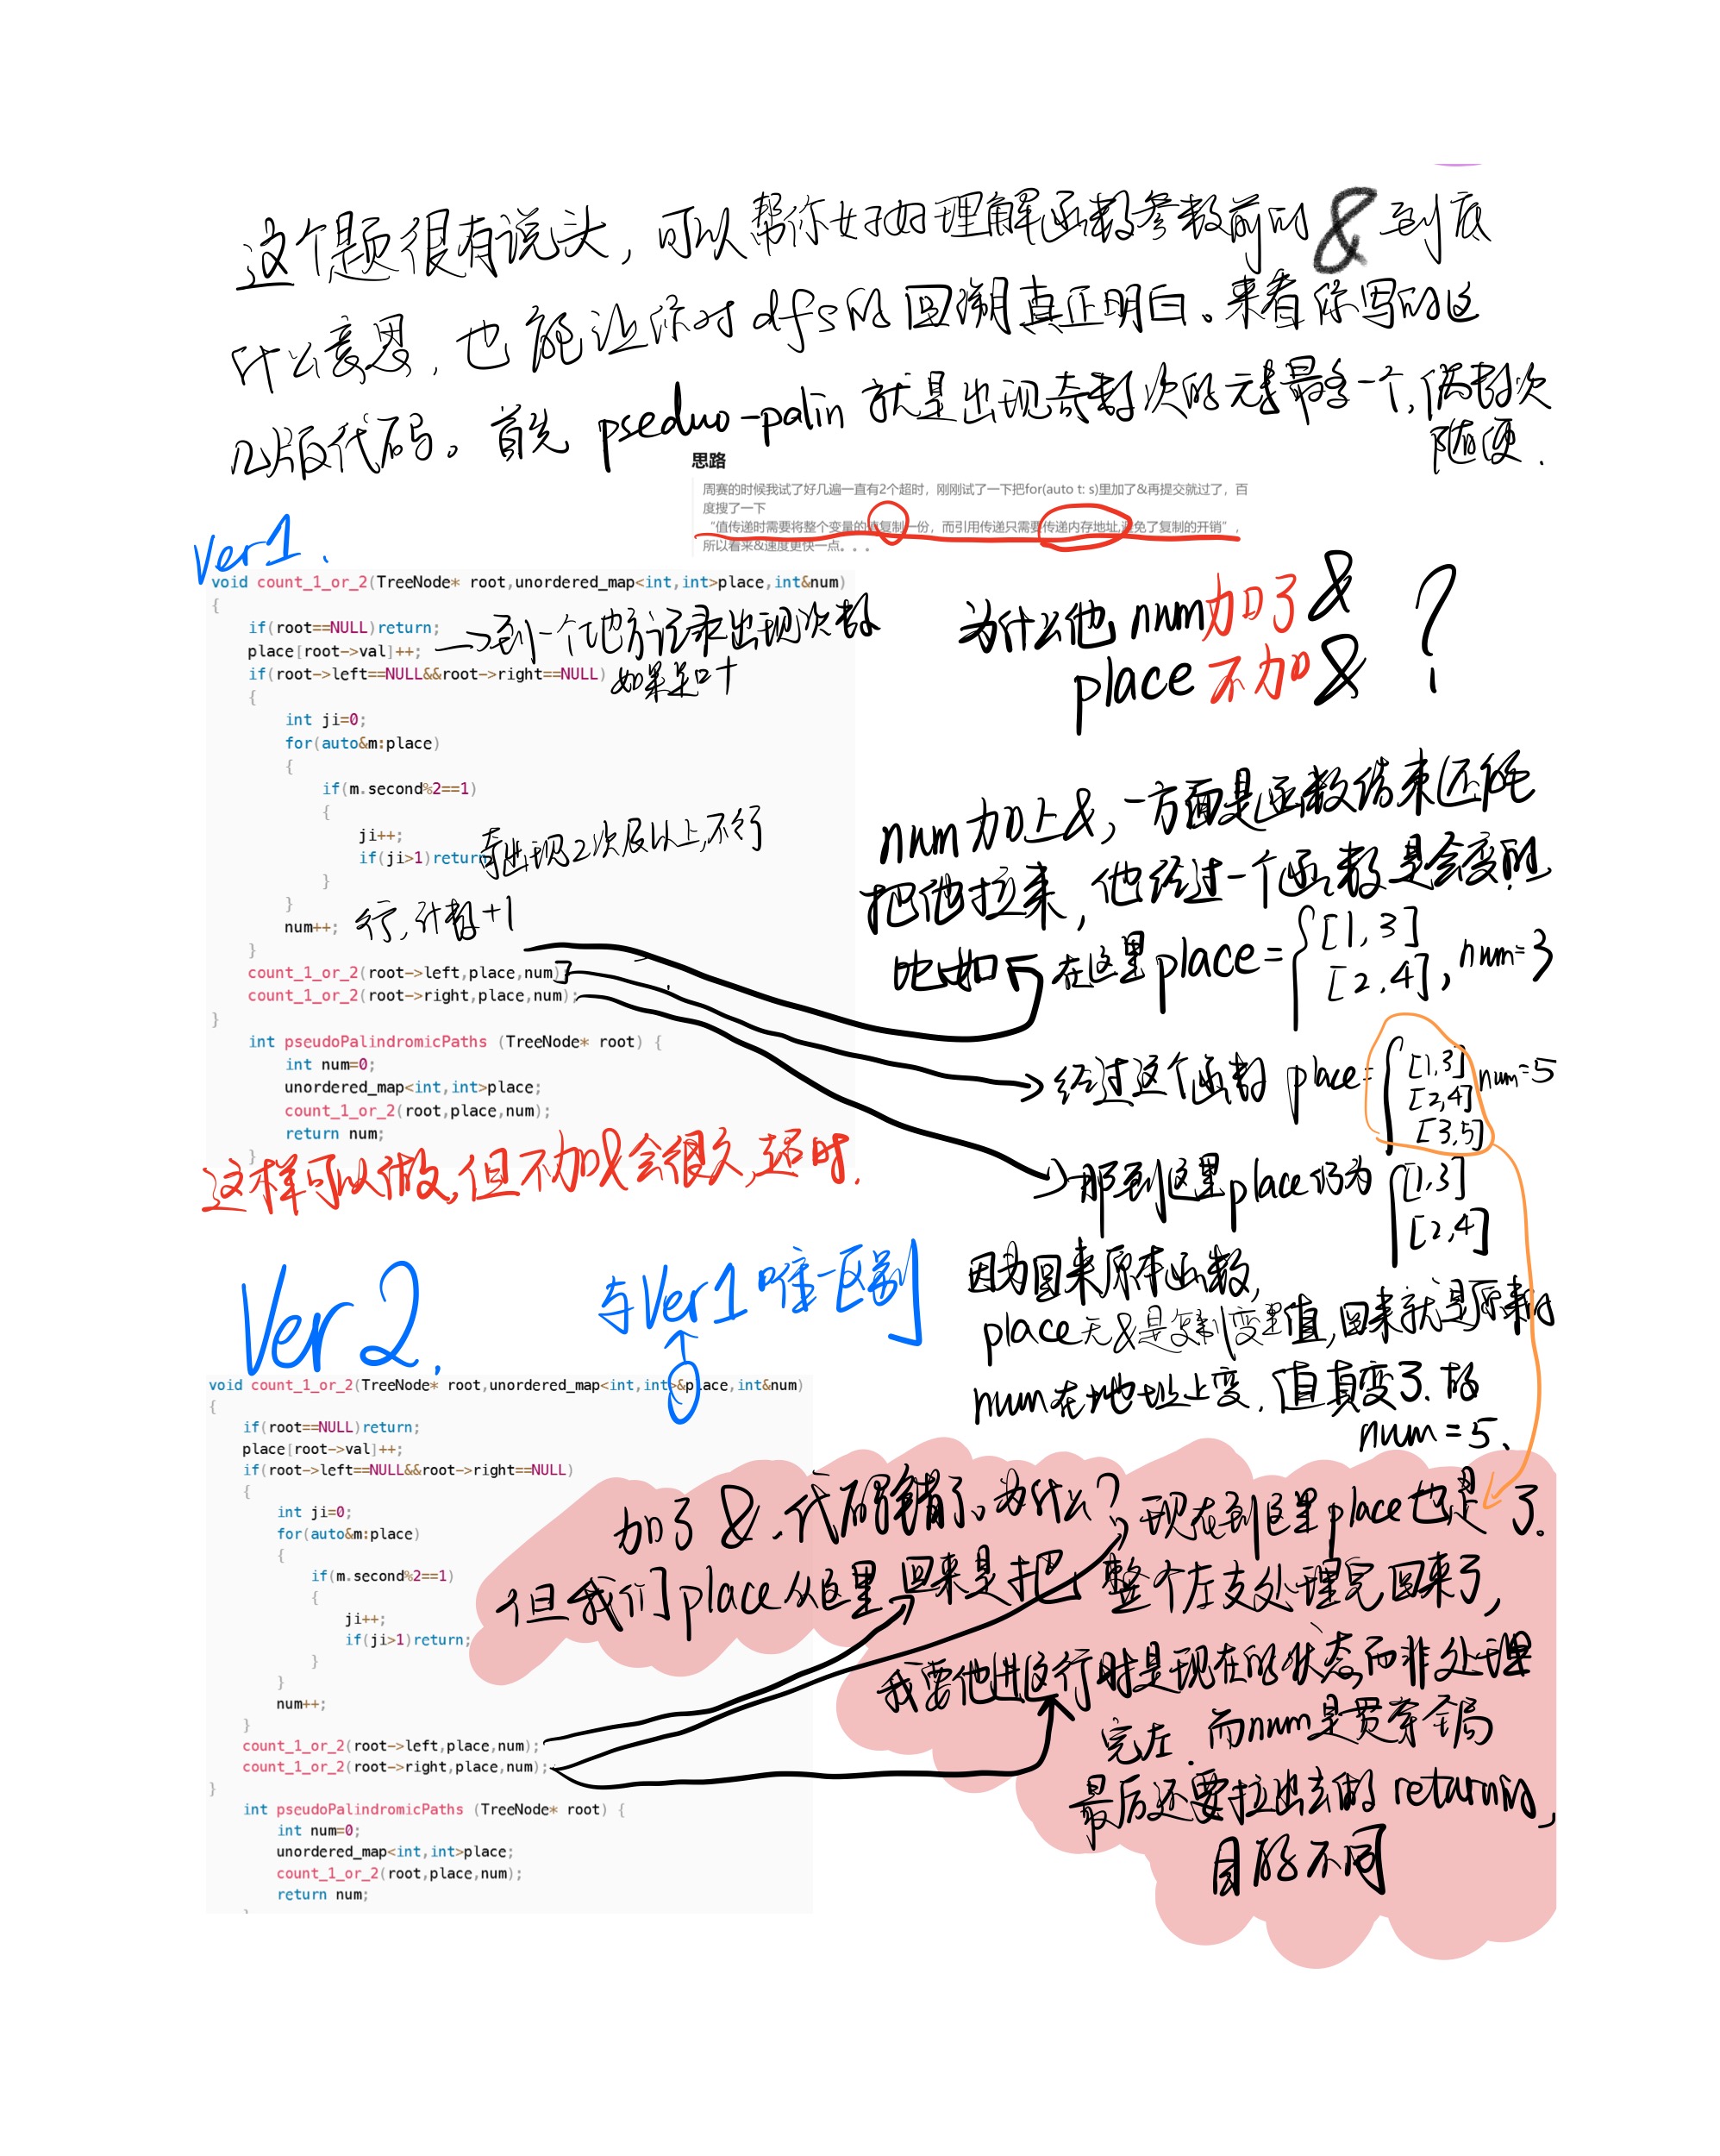 这个题很有说头，可以帮你好好理解函数参数前的&到底
什么意思，也能让你对dfs的回溯真正明白。来看你写的这
几版代码。首先pseduo-palin就是出现奇数次的元素最多一个，偶数次
随便．
思路
周赛的时候我试了好几遍一直有2个超时，刚刚试了一下把for(auto t: s)里加了&再提交就过了，百
度搜了一下
“值传递时需要将整个变量的值复制一份，而引用传递只需要传递内存地址,避免了复制的开销”，
所以看来&速度更快一点。。。
Ver1．
void count_1_or_2(TreeNode* root,unordered_map<int,int>place,int&num)
{
if(root==NULL)return;
place[root->val]++; →到一个地方记录出现次数
if(root->left==NULL&&root->right==NULL) 如果是叶
{
int ji=0;
for(auto&m:place)
{
if(m.second%2==1)
{
ji++;
if(ji>1)return 奇出现2次及以上，不行
}
}
num++; 行，计数+1
}
count_1_or_2(root->left,place,num);
count_1_or_2(root->right,place,num);
}
int pseudoPalindromicPaths (TreeNode* root) {
int num=0;
unordered_map<int,int>place;
count_1_or_2(root,place,num);
return num;
}
这样可以做，但不加&会很久，超时．
为什么他num加了&
place不加&？
num加上&，一方面是函数结束还能
把他拉来，他经过一个函数是会变的
比如 在这里place={[1,3]
[2,4]，num=3
→经过这个函数 place={[1,3] num=5
[2,4]
[3,5]
→那到这里place仍为{[1,3]
[2,4]
因为回来原本函数，
place无&是复制变量值，回来就是原来的
num在地址上变，值真变了．
num=5．
Ver2．
与Ver1唯一区别
void count_1_or_2(TreeNode* root,unordered_map<int,int>&place,int&num)
{
if(root==NULL)return;
place[root->val]++;
if(root->left==NULL&&root->right==NULL)
{
int ji=0;
for(auto&m:place)
{
if(m.second%2==1)
{
ji++;
if(ji>1)return;
}
}
num++;
}
count_1_or_2(root->left,place,num);
count_1_or_2(root->right,place,num);
}
int pseudoPalindromicPaths (TreeNode* root) {
int num=0;
unordered_map<int,int>place;
count_1_or_2(root,place,num);
return num;
}
加了&，代码错了。为什么？现在到这里place也是 了．
但我们place从这里回来是把整个左支处理完回来了，
我要他进这行时是现在的状态而非处理
完左．而num是贯穿全局
最后还要拉出去的return的，
目的不同